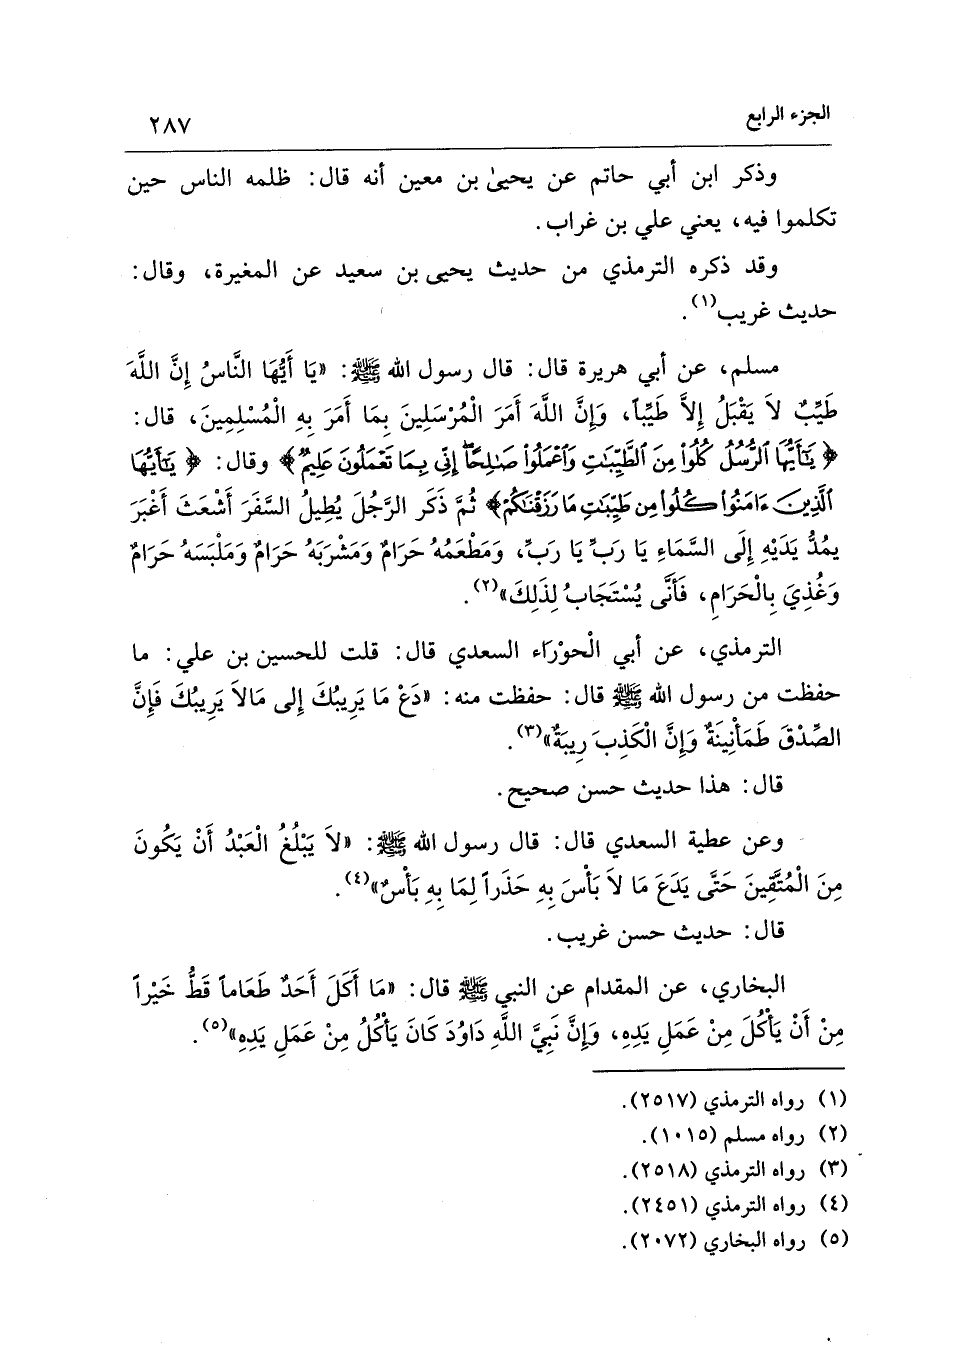 الجزء الرابع ٢٨٧
وذكر ابن أبي حاتم عن يحيىٰ بن معين أنه قال: ظلمه الناس حين
تكلموا فيه، يعني علي بن غراب.
وقد ذكره الترمذي من حديث يحيى بن سعيد عن المغيرة، وقال:
حديث غريب(١).
مسلم، عن أبي هريرة قال: قال رسول الله ﷺ: «يَا أَيُّهَا النَّاسُ إِنَّ اللَّهَ
طَيِّبٌ لاَ يَقْبَلُ إِلاَّ طَيِّباً، وَإِنَّ اللَّهَ أَمَرَ الْمُرْسَلِينَ بِمَا أَمَرَ بِهِ الْمُسْلِمِينَ، قال:
﴿يَٰٓأَيُّهَا ٱلرُّسُلُ كُلُوا۟ مِنَ ٱلطَّيِّبَٰتِ وَٱعْمَلُوا۟ صَٰلِحًا ۖ إِنِّى بِمَا تَعْمَلُونَ عَلِيمٌ﴾ وقال: ﴿يَٰٓأَيُّهَا
ٱلَّذِينَ ءَامَنُوا۟ كُلُوا۟ مِن طَيِّبَٰتِ مَا رَزَقْنَٰكُمْ﴾ ثُمَّ ذَكَرَ الرَّجُلَ يُطِيلُ السَّفَرَ أَشْعَثَ أَغْبَرَ
يمُدُّ يَدَيْهِ إِلَى السَّمَاءِ يَا رَبِّ يَا رَبِّ، وَمَطْعَمُهُ حَرَامٌ وَمَشْرَبَهُ حَرَامٌ وَمَلْبَسَهُ حَرَامٌ
وَغُذِيَ بِالْحَرَامِ، فَأَنَّى يُسْتَجَابُ لِذَلِكَ»(٢).
الترمذي، عن أبي الْحوْرَاء السعدي قال: قلت للحسين بن علي: ما
حفظت من رسول الله ﷺ قال: حفظت منه: «دَعْ مَا يَرِيبُكَ إِلى مَالاَ يَرِيبُكَ فَإِنَّ
الصِّدْقَ طَمَأْنِينَةٌ وَإِنَّ الْكَذِبَ رِيبَةٌ»(٣).
قال: هذا حديث حسن صحيح.
وعن عطية السعدي قال: قال رسول الله ﷺ: «لاَ يَبْلُغُ الْعَبْدُ أَنْ يَكُونَ
مِنَ الْمُتَّقِينَ حَتَّى يَدَعَ مَا لاَ بَأْسَ بِهِ حَذَراً لِمَا بِهِ بَأْسٌ»(٤).
قال: حديث حسن غريب.
البخاري، عن المقدام عن النبي ﷺ قال: «مَا أَكَلَ أَحَدٌ طَعَاماً قَطُّ خَيْراً
مِنْ أَنْ يَأْكُلَ مِنْ عَمَلِ يَدِهِ، وَإِنَّ نَبِيَّ اللَّهِ دَاوُدَ كَانَ يَأْكُلُ مِنْ عَمَلِ يَدِهِ»(٥).
(١) رواه الترمذي (٢٥١٧).
(٢) رواه مسلم (١٠١٥).
(٣) رواه الترمذي (٢٥١٨).
(٤) رواه الترمذي (٢٤٥١).
(٥) رواه البخاري (٢٠٧٢).